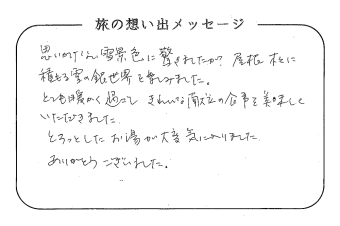 旅の想い出メッセージ
思いがけない雪景色に驚きましたが? 屋根 木々に
積もる雪の銀世界を楽しみました。
とても暖かく過ごし きれいな の食事を美味しく
いただきました。
とろっとしたお湯が大変気に入りました
ありがとうございました。